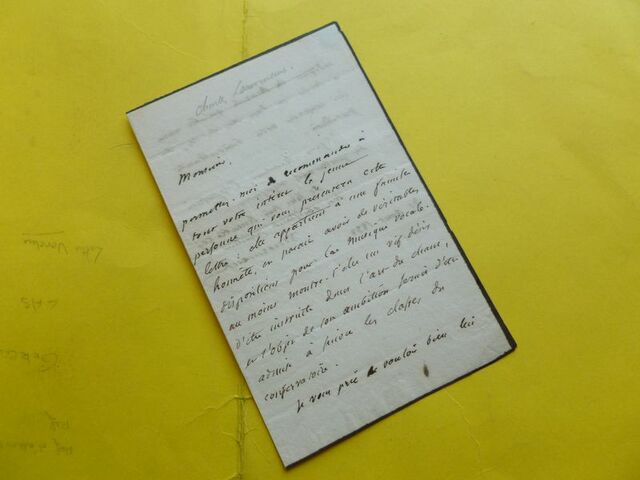 Monsieur,
permettez-moi de recommander à
tout votre intérêt la jeune
personne qui vous présentera cette
lettre : elle appartient à une famille
honnête, et paraît avoir de véritables
dispositions pour la musique vocale.
au moins montre-t'elle un vif désir
d'être instruite dans l'art du chant,
et l'objet de son ambition serait d'être
admise à suivre les classes du
conservatoire.
je vous prie de vouloir bien lui